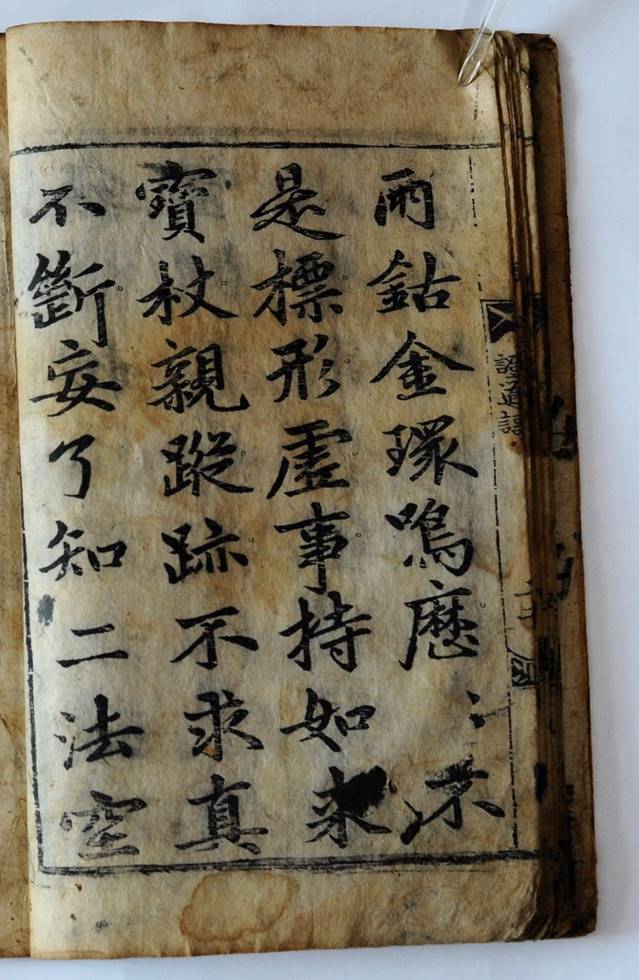 兩鈷金環鳴歷〻不
是標形虛事持如来
寶杖親蹤跡不求真
不斷妄了知二法空